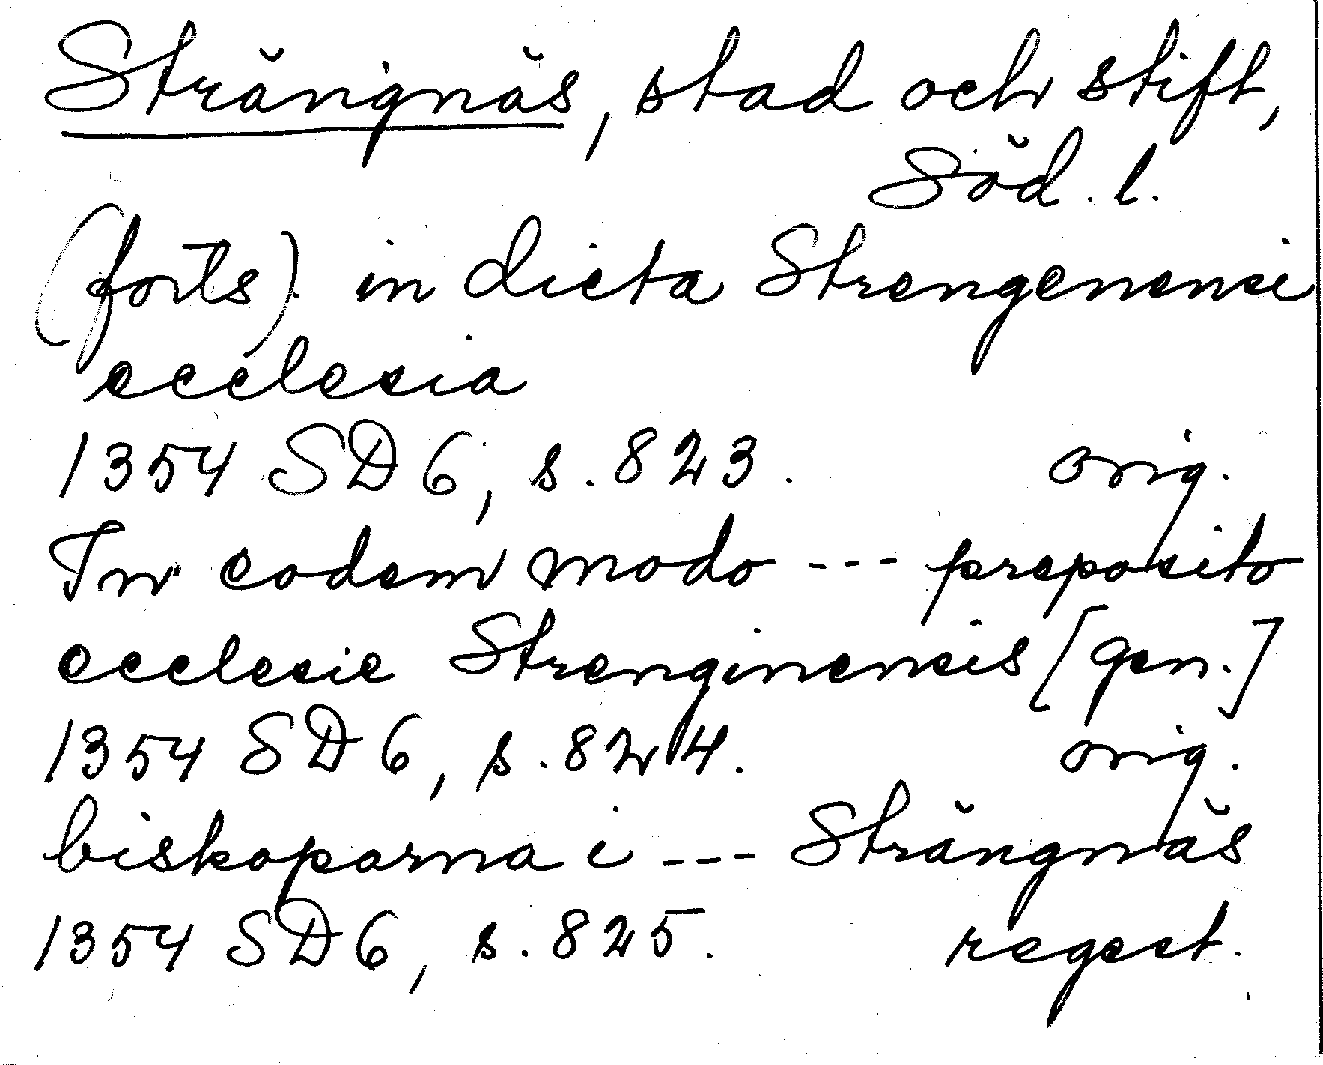 Strängnäs, stad och stift,
Söd. l.
(forts). in dicta Strengenensi
ecclesia
1354 SD 6, s. 823. orig.
In eodem modo --- preposito
ecclesie Strenginensis [gen.]
1354 SD 6, s. 824. orig.
biskoparna i --- Strängnäs
1354 SD 6, s. 825. regest.